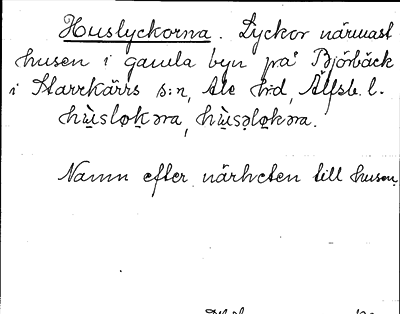 Huslyckorna. Lyckor närmast
husen i gamla byn på Björbäck
i Starrkärrs s:n, Ale hrd, Älfsb. l.
hùsloka ra, hùsəlokəra.
Namn efter närheten till husen.